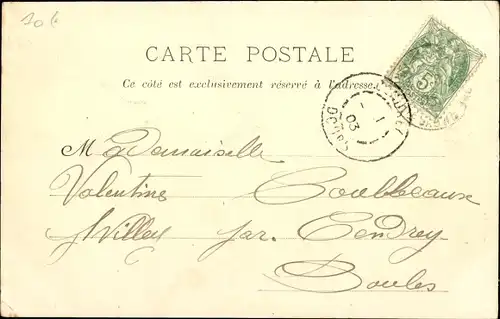 10 €
CARTE POSTALE
Ce côté est exclusivement réservé à l'adresse.
5
1
03
DOUBS
Mademoiselle
Valentine Coulbeaux
par Cendrey
Doubs